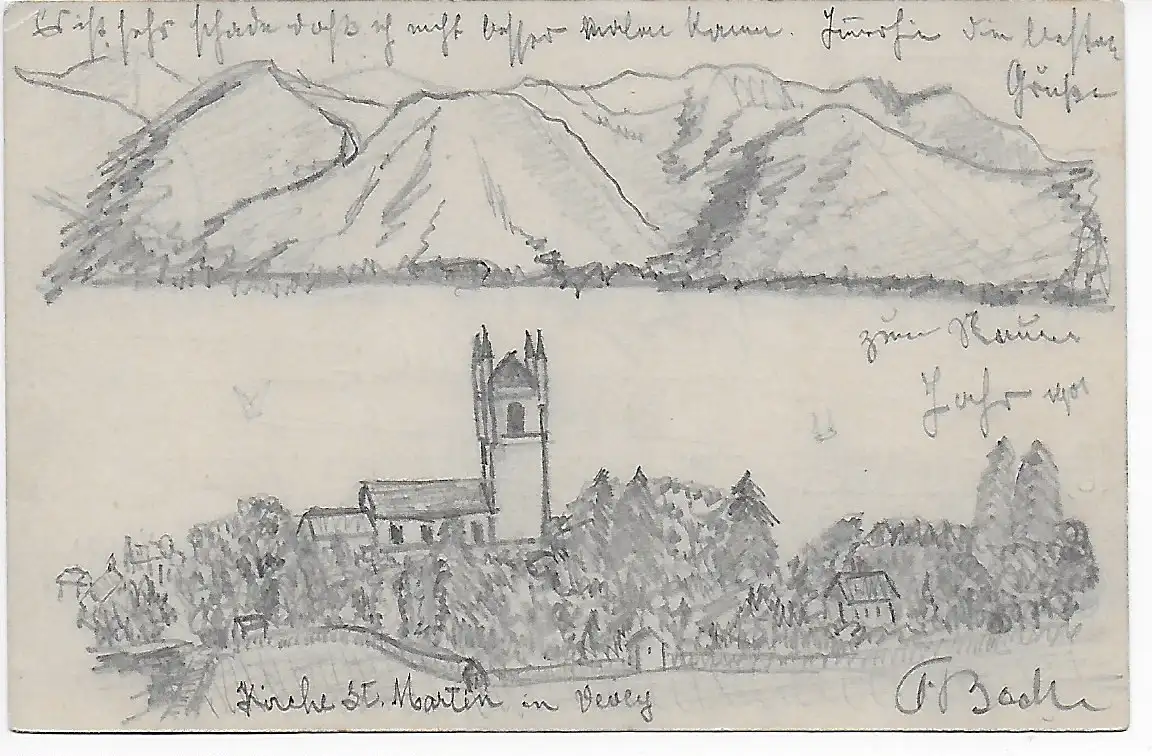 Es ist sehr schade daß ich nicht besser malen kann. Immerhin die besten
Grüße
zum Neuen
Jahr 1901
Kirche St. Martin in Vevey